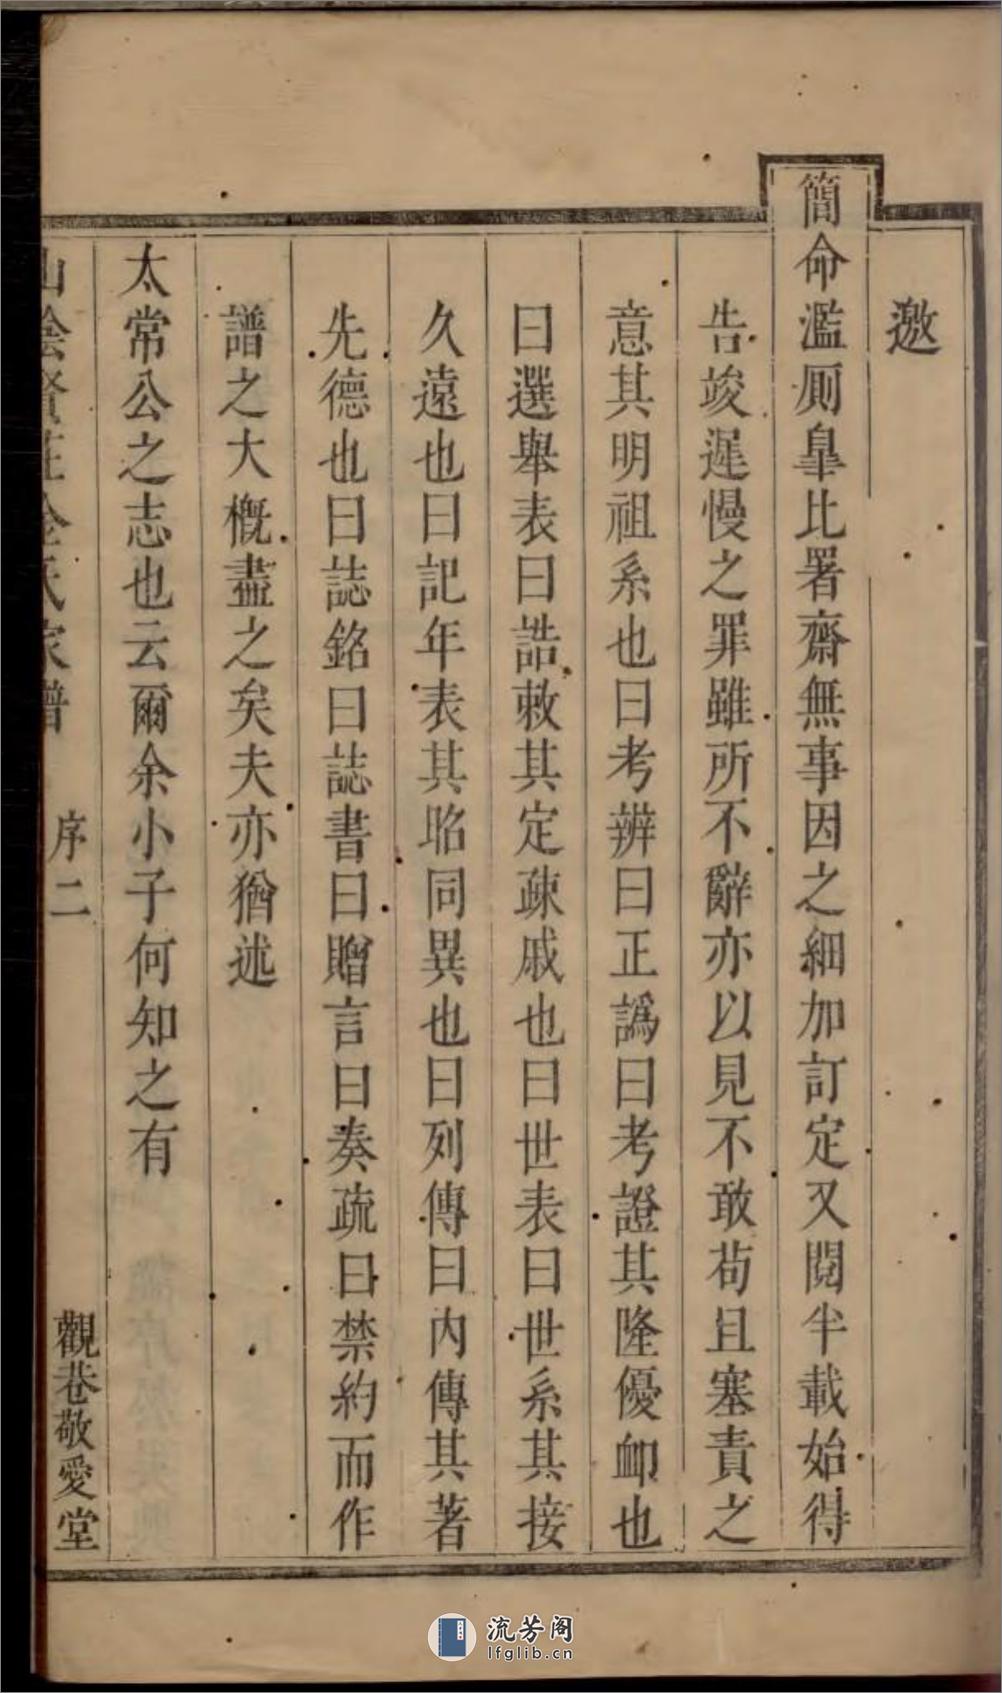 邀
簡命濫厠臯比署齋無事因之細加訂定又閱半載始得
告竣遲慢之罪雖所不辭亦以見不敢茍且塞責之
意其明祖系也曰考辨曰正譌曰考證其隆優卹也
曰選舉表曰誥敕其定疎戚也曰世表曰世系其接
久遠也曰記年表其昭同異也曰列傳曰內傳其著
先德也曰誌銘曰誌書曰贈言曰奏疏曰禁約而作
譜之大槪盡之矣夫亦猶述
太常公之志也云爾余小子何知之有
山陰賢莊金氏家譜 序二 觀巷敬愛堂
流芳阁
lfglib.cn